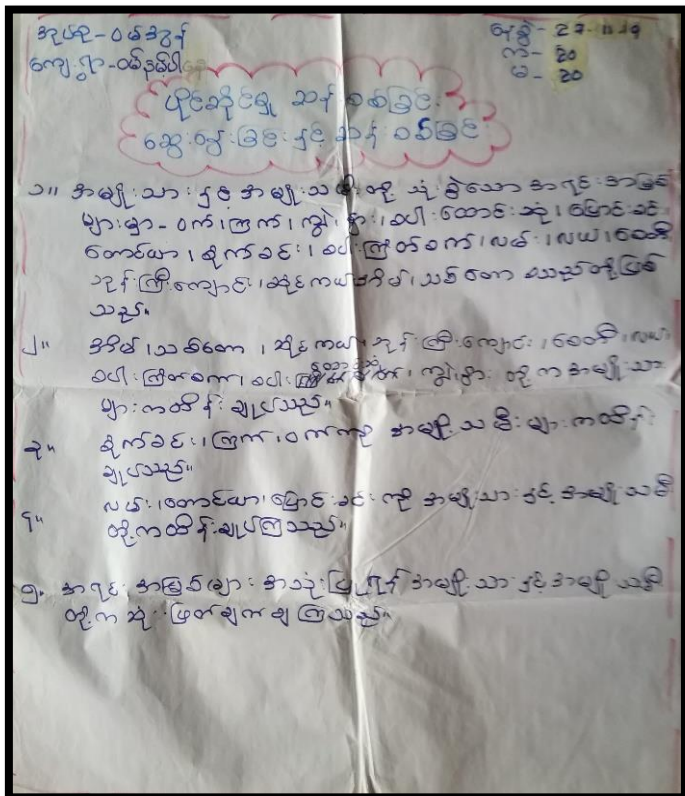 အုပ်စု - ဝမ်အွန်
ကျေးရွာ - ဝမ်နမ့်ပါ
နေ့စွဲ - 27.11.19
က - 20
မ - 20
ပိုင်ဆိုင်မှု ဆန်းစစ်ခြင်း
ဆွေးနွေးခြင်းနှင့် ဆန်းစစ်ခြင်း
၁။ အမျိုးသားနှင့် အမျိုးသမီးတို့ သုံးစွဲသော အရင်းအမြစ်
များမှာ - ဝက်၊ ကြက်၊ ကျွဲ၊ နွား၊ စပါးထောင်းဆုံ၊ ပြောင်းခင်း
တောင်ယာ၊ စိုက်ခင်း၊ စပါးကြိတ်စက်၊ လမ်း၊ လယ်၊ စေတီ
ဘုန်းကြီးကျောင်း၊ ဆိုင်ကယ်၊ အိမ်၊ သစ်တော စသည်တို့ဖြစ်
သည်။
၂။ အိမ်၊ သစ်တော၊ ဆိုင်ကယ်၊ ဘုန်းကြီးကျောင်း၊ စေတီ၊ လယ်၊
စပါးကြိတ်စက်၊ စပါး ကျွဲ၊ နွား တို့က အမျိုးသား
များကထိန်းချုပ်သည်။
၃။ စိုက်ခင်း၊ ကြက်၊ ဝက်ကို အမျိုးသမီးများကထိန်း
ချုပ်သည်။
၄။ လမ်း၊ တောင်ယာ၊ ပြောင်းခင်းကို အမျိုးသားနှင့် အမျိုးသမီး
တို့ကထိန်းချုပ်ကြသည်။
၅။ အရင်းအမြစ်များ အသုံးပြုရန် အမျိုးသားနှင့် အမျိုးသမီး
တို့က ဆုံးဖြတ်ချက်ချကြသည်။